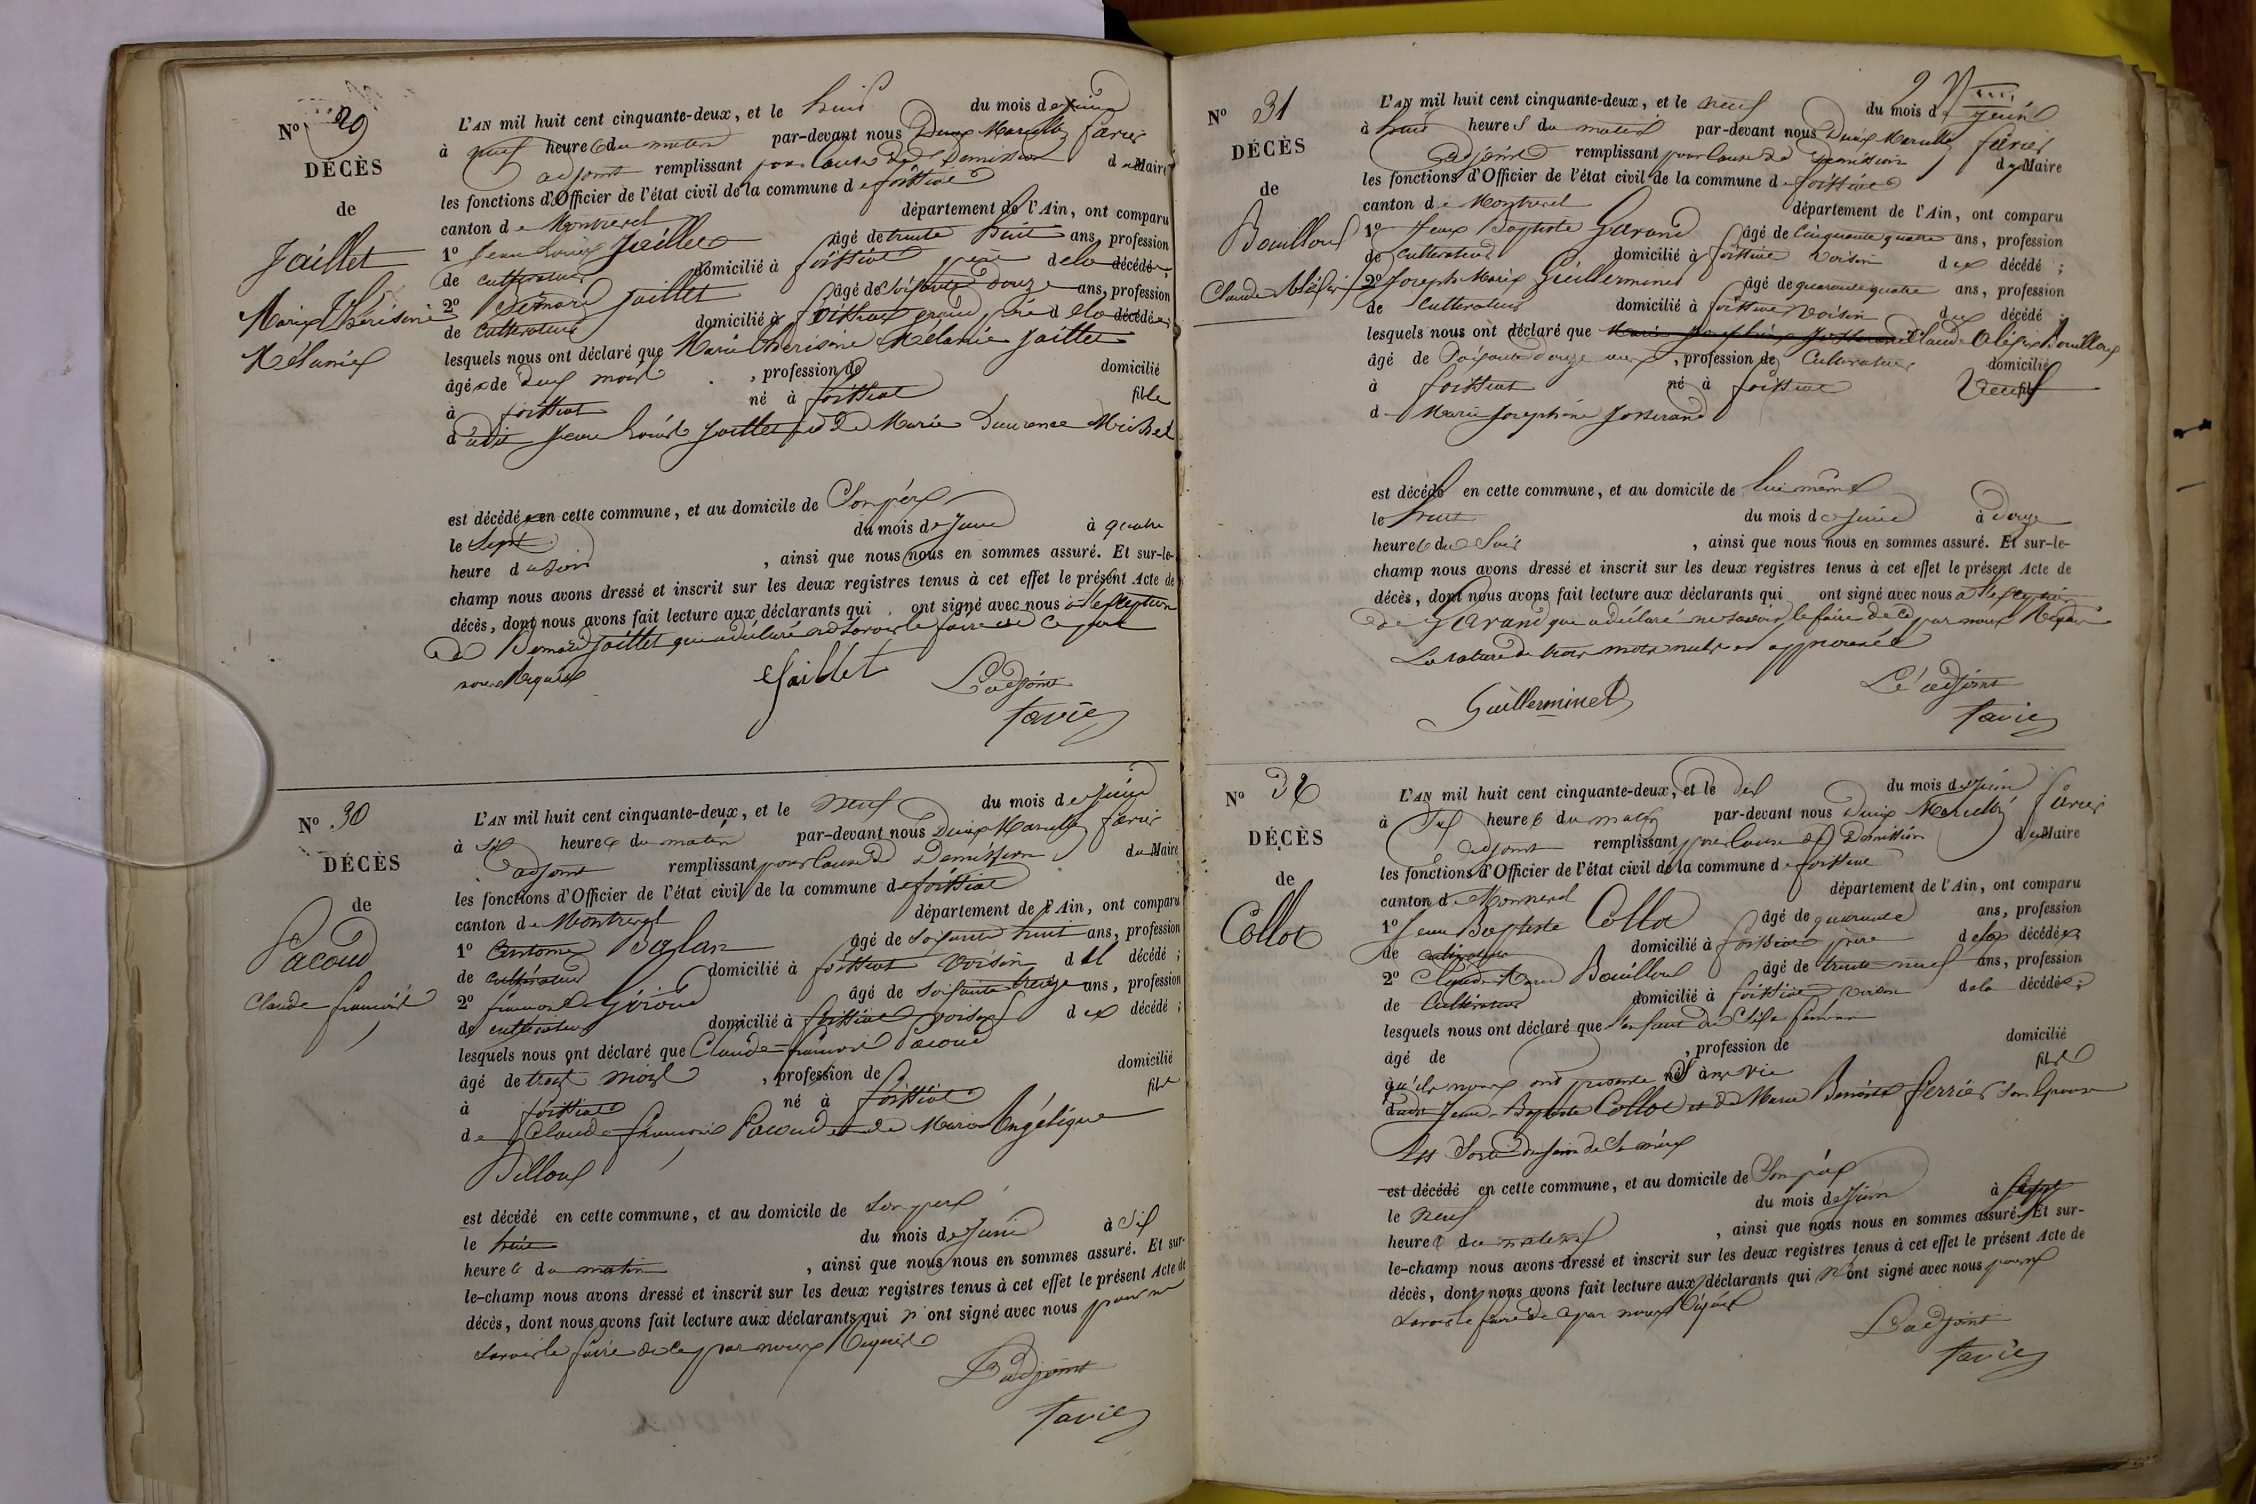 N° 29
DÉCÈS
de
Jaillet
Marie Thérèsine
Mélanie
L'AN mil huit cent cinquante-deux, et le huit du mois de juin
à neuf heures du matin par-devant nous Denis Marcellin favier
adjoint remplissant pour cause de Demission du Maire
les fonctions d'Officier de l'état civil de la commune de foissiat
canton de Montrevel département de l'Ain, ont comparu
1° Jean Louis Jaillet âgé de trente huit ans, profession
de cultivateur domicilié à foissiat père de la décédée;
2° Bernard Jaillet âgé de soixante douze ans, profession
de cultivateur domicilié à foissiat grand père de la décédée;
lesquels nous ont déclaré que Marie Thérèsine Mélanie Jaillet
âgée de deux mois, profession de domicilié
à foissiat né à foissiat fille
dudit Jean Louis Jaillet et de Marie Laurence Michel
est décédée en cette commune, et au domicile de Son père
le Sept du mois de Juin à quatre
heure du soir, ainsi que nous nous en sommes assuré. Et sur-le-
champ nous avons dressé et inscrit sur les deux registres tenus à cet effet le présent Acte de
décès, dont nous avons fait lecture aux déclarants qui ont signé avec nous à l'exception
de Bernard Jaillet qui a déclaré ne savoir le faire de ce par
nous Requis
Jaillet L'adjoint
favier
N° 30
DÉCÈS
de
Pacoud
Claude françois
L'AN mil huit cent cinquante-deux, et le neuf du mois de Juin
à six heures du matin par-devant nous Denis Marcellin favier
adjoint remplissant pour cause de Demission du Maire
les fonctions d'Officier de l'état civil de la commune de foissiat
canton de Montrevel département de l'Ain, ont comparu
1° Antoine âgé de soixante huit ans, profession
de cultivateur domicilié à foissiat voisin du décédé;
2° françois âgé de soixante treize ans, profession
de cultivateur domicilié à foissiat voisin du décédé;
lesquels nous ont déclaré que Claude françois Pacoud
âgé de trois mois, profession de domicilié
à foissiat né à foissiat fils
de Claude françois Pacoud et de Marie Angélique
Billoud
est décédé en cette commune, et au domicile de son père
le huit du mois de Juin à six
heures du matin, ainsi que nous nous en sommes assuré. Et sur-
le-champ nous avons dressé et inscrit sur les deux registres tenus à cet effet le présent Acte de
décès, dont nous avons fait lecture aux déclarants qui n'ont signé avec nous pour ne
savoir le faire de ce par nous Requis
L'adjoint
favier
N° 31
DÉCÈS
de
Bouilloud
Claude
L'AN mil huit cent cinquante-deux, et le neuf du mois de juin
à huit heures du matin par-devant nous Denis Marcellin favier
adjoint remplissant pour cause de Demission du Maire
les fonctions d'Officier de l'état civil de la commune de foissiat
canton de Montrevel département de l'Ain, ont comparu
1° Jean Baptiste Garand âgé de cinquante quatre ans, profession
de cultivateur domicilié à foissiat voisin du décédé;
2° Joseph Marie Guilleminet âgé de quarante quatre ans, profession
de cultivateur domicilié à foissiat voisin du décédé;
lesquels nous ont déclaré que Marie Josephine Josserand Claude Bouilloud
âgé de Soixante douze ans, profession de cultivateur domicilié
à foissiat né à foissiat veuf
de Marie Josephine Josserand
est décédé en cette commune, et au domicile de lui même
le huit du mois de juin à douze
heures du soir, ainsi que nous nous en sommes assuré. Et sur-le-
champ nous avons dressé et inscrit sur les deux registres tenus à cet effet le présent Acte de
décès, dont nous avons fait lecture aux déclarants qui ont signé avec nous à l'exception
de Garand qui a déclaré ne savoir le faire de ce par nous Requis
La rature de trois mots nuls est approuvée
Guilleminet L'adjoint
favier
N° 32
DÉCÈS
de
Collot
L'AN mil huit cent cinquante-deux, et le dix du mois de Juin
à heures du matin par-devant nous Denis Marcellin favier
adjoint remplissant pour cause de Demission du Maire
les fonctions d'Officier de l'état civil de la commune de foissiat
canton de Montrevel département de l'Ain, ont comparu
1° Jean Baptiste Collot âgé de quarante ans, profession
de cultivateur domicilié à foissiat père de la décédée;
2° Claude Bouilloud âgé de trente neuf ans, profession
de cultivateur domicilié à foissiat voisin de la décédée;
lesquels nous ont déclaré que l'enfant du sexe féminin
âgé de, profession de domicilié
qu'ils nous ont présenté né sans vie fille
dudit Jean Baptiste Collot et de Marie Benoite ferrier son épouse
est sorti du sein de sa mère
est décédé en cette commune, et au domicile de Son père
le neuf du mois de Juin à sept
heures du matin, ainsi que nous nous en sommes assuré. Et sur-
le-champ nous avons dressé et inscrit sur les deux registres tenus à cet effet le présent Acte de
décès, dont nous avons fait lecture aux déclarants qui n'ont signé avec nous pour ne
savoir le faire de ce par nous Requis
L'adjoint
favier